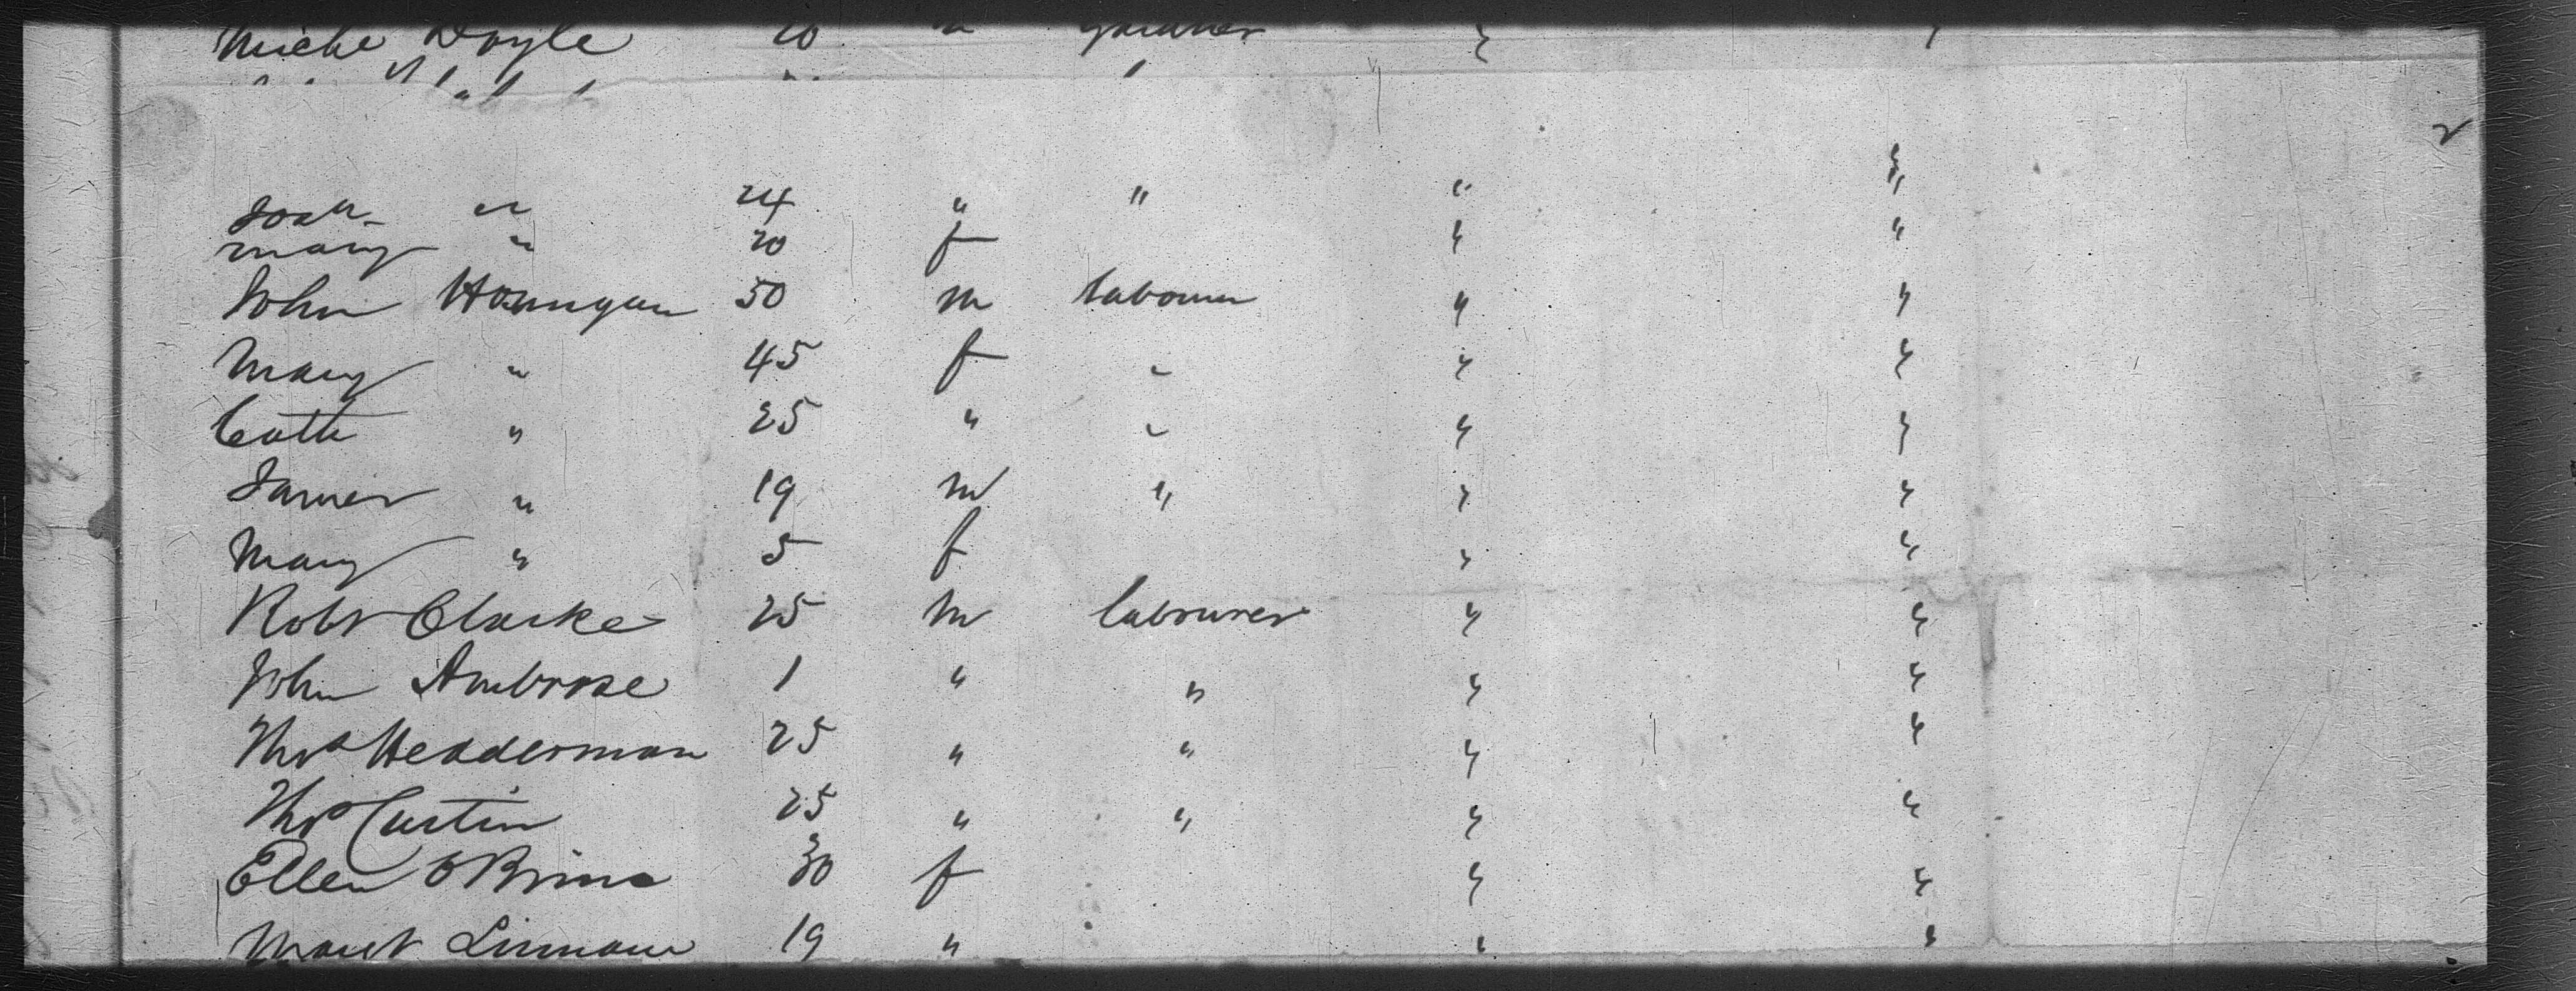 Miche Doyle 20 " gardner "
24 " " " "
Mary " 20 f " "
John Hannigan 50 m labourer " "
Mary " 45 f " " "
Cath " 25 " " " "
James " 19 m " " "
Mary " 5 f " "
Robt Clarke 25 m labourer " "
John Ambrose 1 " " " "
Thos Hedderman 25 " " " "
Thos Curtin 25 " " " "
Ellen OBrine 30 f " "
Margt Linnane 19 " " "